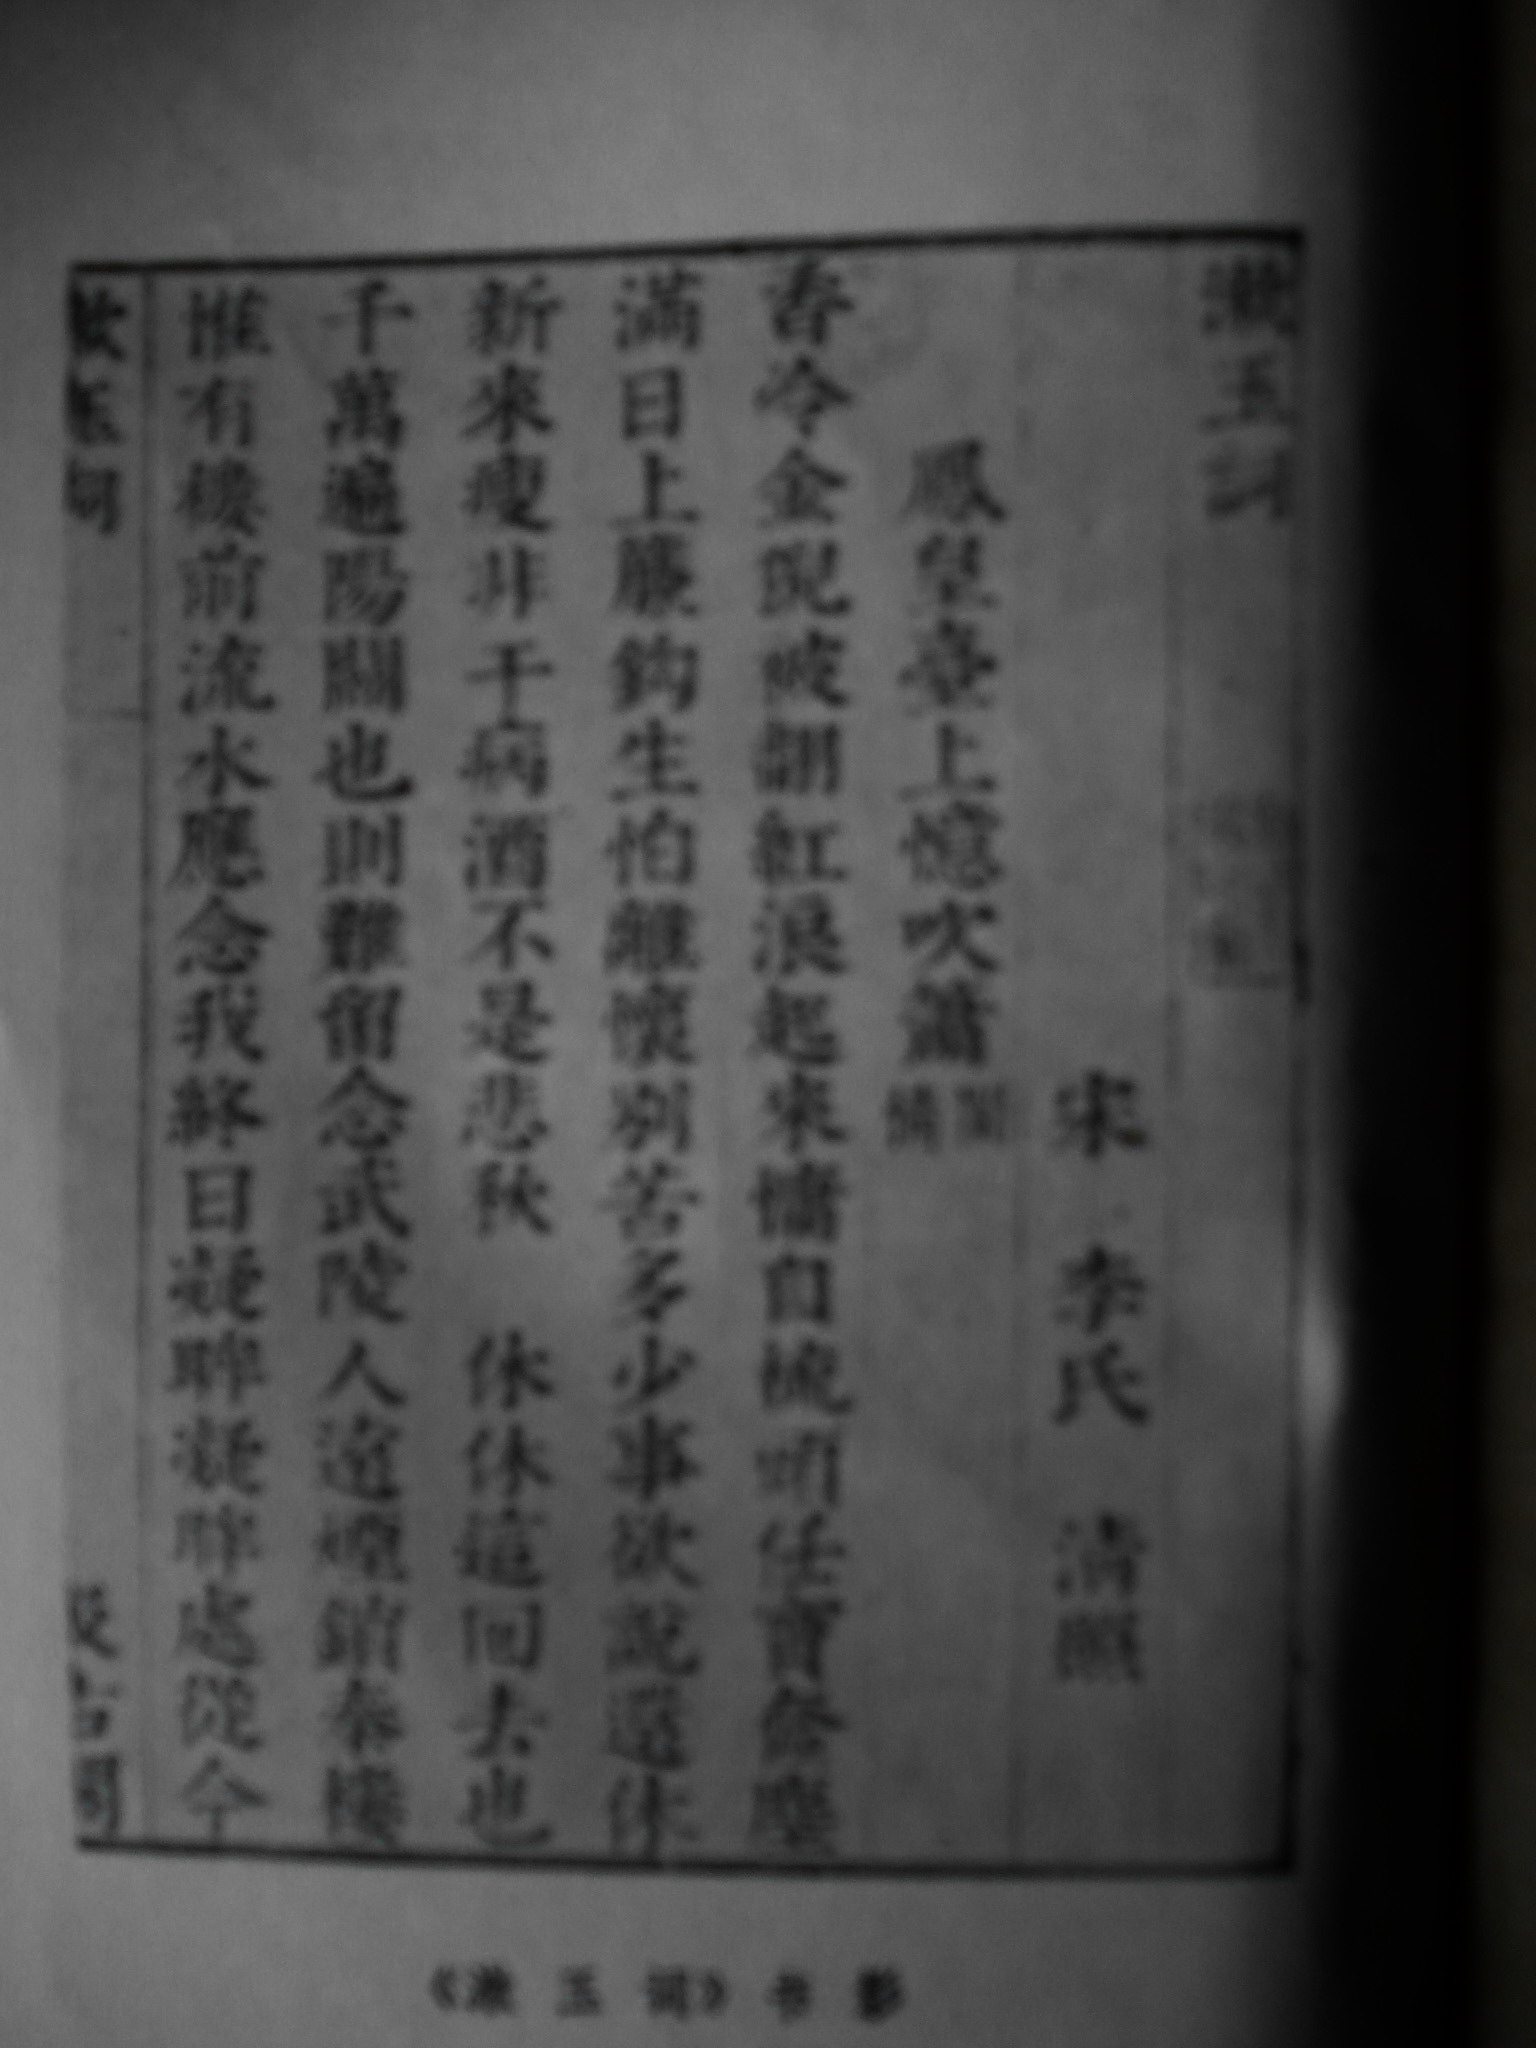 漱玉詞
宋 李氏 清照
鳳凰臺上憶吹簫 閨情
香冷金猊被翻紅浪起來慵自梳頭任寶奩塵
滿日上簾鉤生怕離懷別苦多少事欲說還休
新來瘦非干病酒不是悲秋 休休這回去也
千萬遍陽關也則難留念武陵人遠煙鎖秦樓
惟有樓前流水應念我終日凝眸凝眸處從今
漱玉詞
汲古閣
《漱玉词》书影